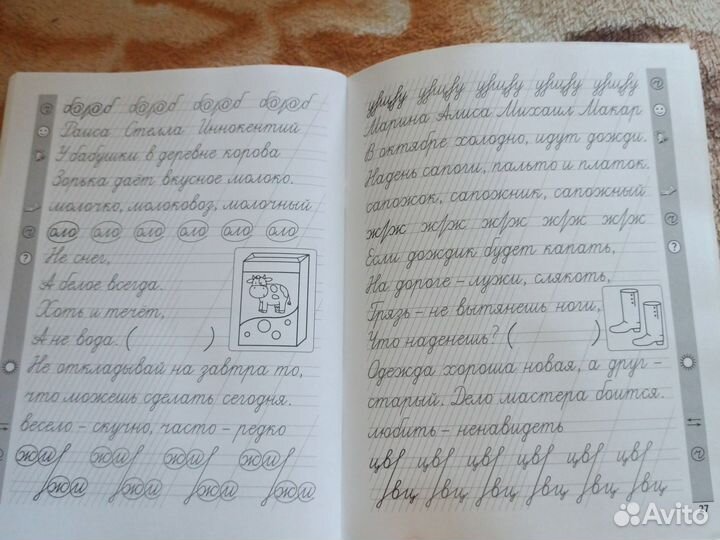 бород бород бород бород
Раиса Стелла Иннокентий
У бабушки в деревне корова
Зорька даёт вкусное молоко.
молочко, молоковоз, молочный
оло оло оло оло оло оло
Не снег,
А белое всегда.
Хоть и течёт,
А не вода. ( )
Не откладывай на завтра то,
что можешь сделать сегодня.
весело – скучно, часто – редко
жи жи жи жи
жи жи жи жи
Марина Алиса Михаил Макар
В октябре холодно, идут дожди.
Надень сапоги, пальто и платок.
сапожок, сапожник, сапожный
Если дождик будет капать,
На дороге – лужи, слякоть,
Грязь – не вытянешь ноги,
Что наденешь? ( )
Одежда хороша новая, а друг –
старый. Дело мастера боится.
любить – ненавидеть
37
Avito